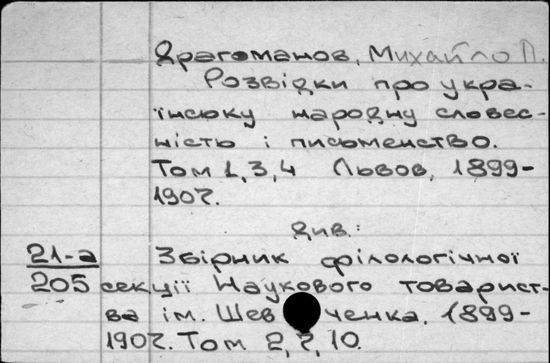 Драгоманов, Михайло П.
Розвідки про укра-
їнську народну словес-
ність і письменство.
Том 1, 3, 4 Львов, 1899-
1907.
див:
21-а Збірник філологічної
205 секції Наукового товарист-
ва ім. Шевченка. 1899-
1907. Том 2, 7, 10.